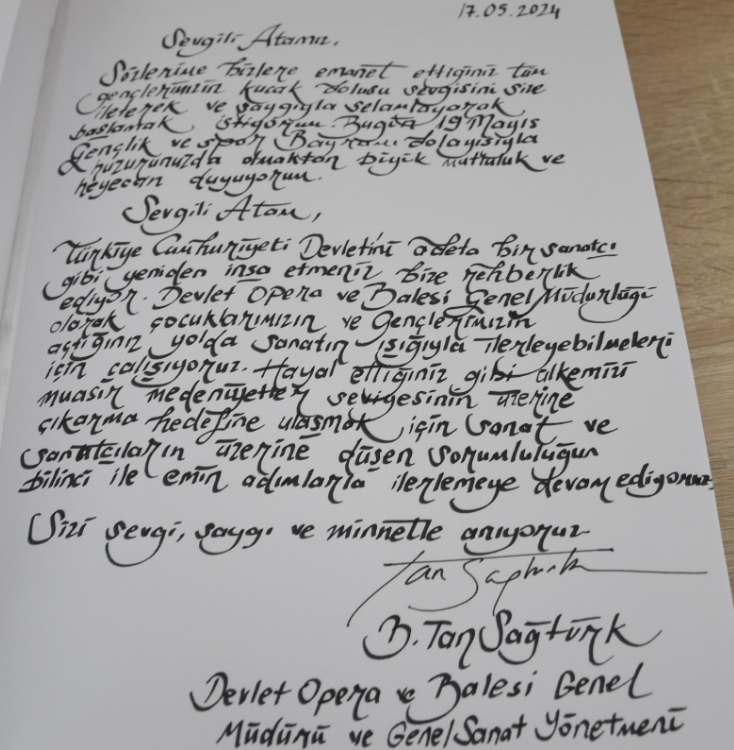 17.05.2024
Sevgili Atamız,
Sözlerime bizlere emanet ettiğiniz tüm
gençlerimizin kucak dolusu sevgisini size
ileterek ve saygıyla selamlayarak
başlamak istiyorum. Bugün 19 Mayıs
Gençlik ve Spor Bayramı dolayısıyla
huzurunuzda olmaktan büyük mutluluk ve
heyecan duyuyorum.
Sevgili Atam,
Türkiye Cumhuriyeti Devletini adeta bir sanatçı
gibi yeniden inşa etmeniz bize rehberlik
ediyor. Devlet Opera ve Balesi Genel Müdürlüğü
olarak çocuklarımızın ve Gençlerimizin
açtığınız yolda sanatın ışığıyla ilerleyebilmeleri
için çalışıyoruz. Hayal ettiğiniz gibi ülkemizi
muasır medeniyetler seviyesinin üzerine
çıkarma hedefine ulaşmak için sanat ve
sanatçıların üzerine düşen sorumluluğun
bilinci ile emin adımlarla ilerlemeye devam ediyoruz.
Sizi sevgi, saygı ve minnetle anıyoruz
Tan Sağtürk
B. Tan Sağtürk
Devlet Opera ve Balesi Genel
Müdürü ve Genel Sanat Yönetmeni